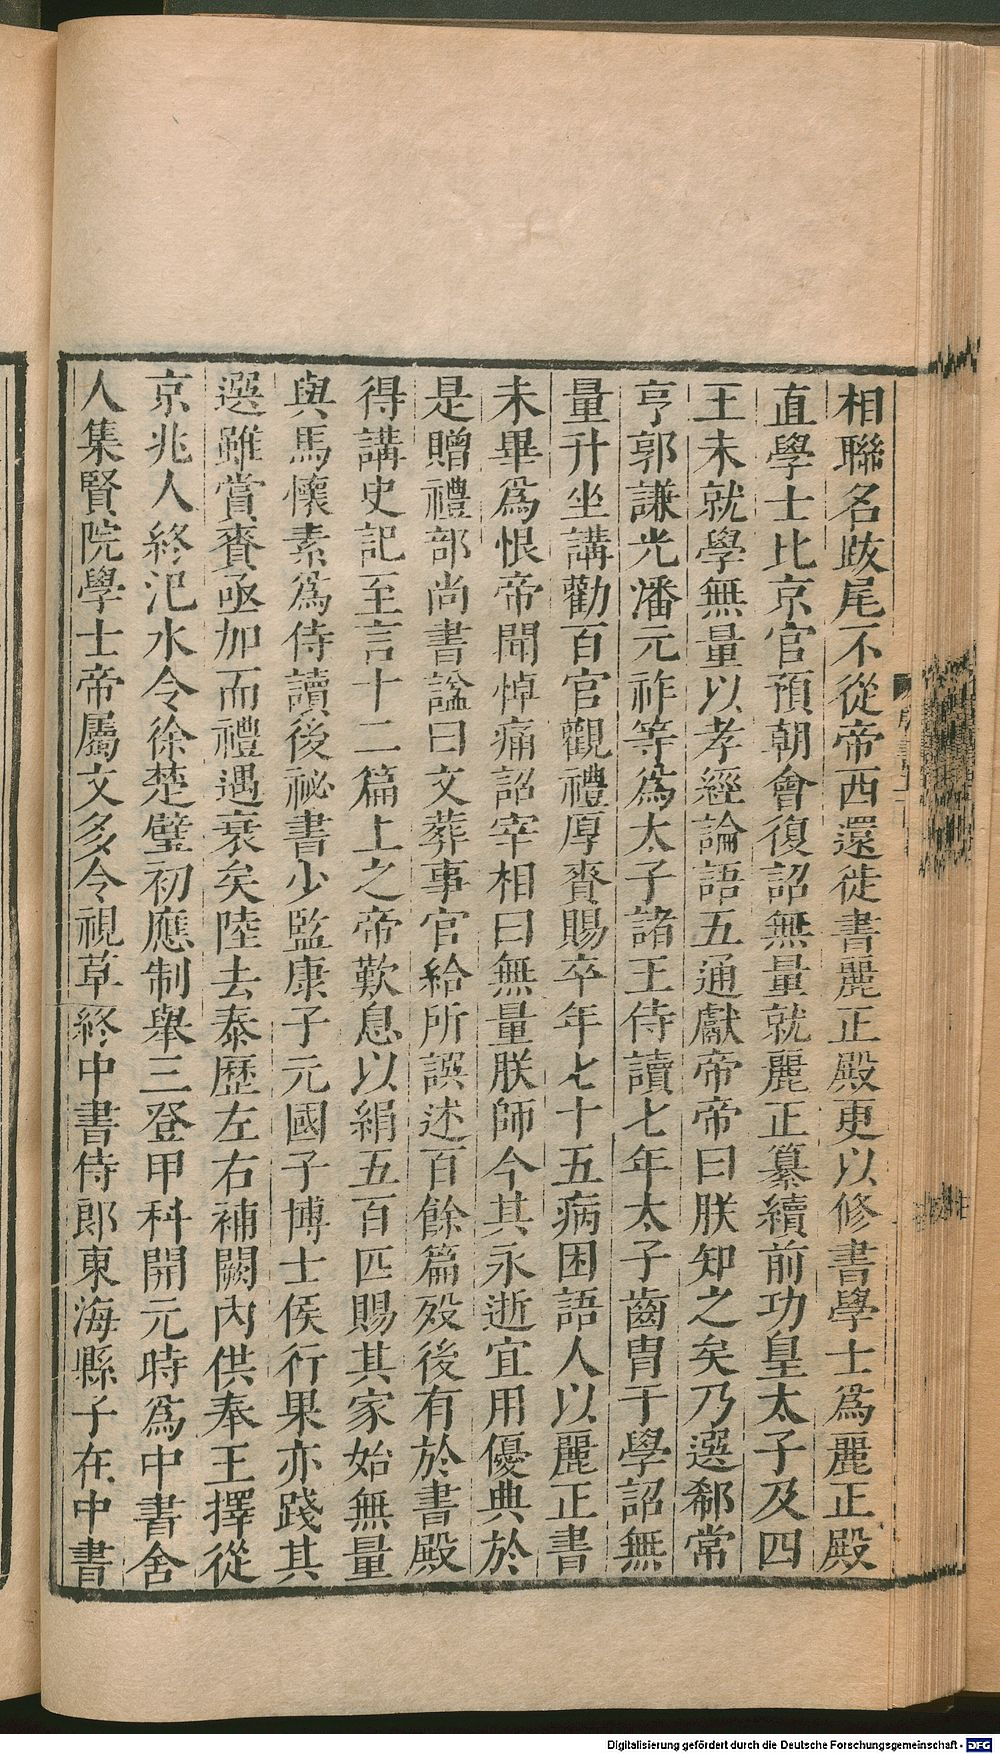 相聯名跋尾不從帝西還徙書麗正殿更以修書學士爲麗正殿
直學士比京官預朝會復詔無量就麗正纂續前功皇太子及四
王未就學無量以孝經論語五通獻帝帝曰朕知之矣乃選郗常
亨郭謙光潘元祚等爲太子諸王侍讀七年太子齒胄于學詔無
量升坐講勸百官觀禮厚賚賜卒年七十五病困語人以麗正書
未畢爲恨帝聞悼痛詔宰相曰無量朕師今其永逝宜用優典於
是贈禮部尚書諡曰文葬事官給所譔述百餘篇歿後有於書殿
得講史記至言十二篇上之帝歎息以絹五百匹賜其家始無量
與馬懷素爲侍讀後祕書少監康子元國子博士侯行果亦踐其
選雖賞賚亟加而禮遇衰矣陸去泰歷左右補闕內供奉王擇從
京兆人終汜水令徐楚璧初應制舉三登甲科開元時爲中書舍
人集賢院學士帝屬文多令視草終中書侍郎東海縣子在中書
Digitalisierung gefördert durch die Deutsche Forschungsgemeinschaft - DFG